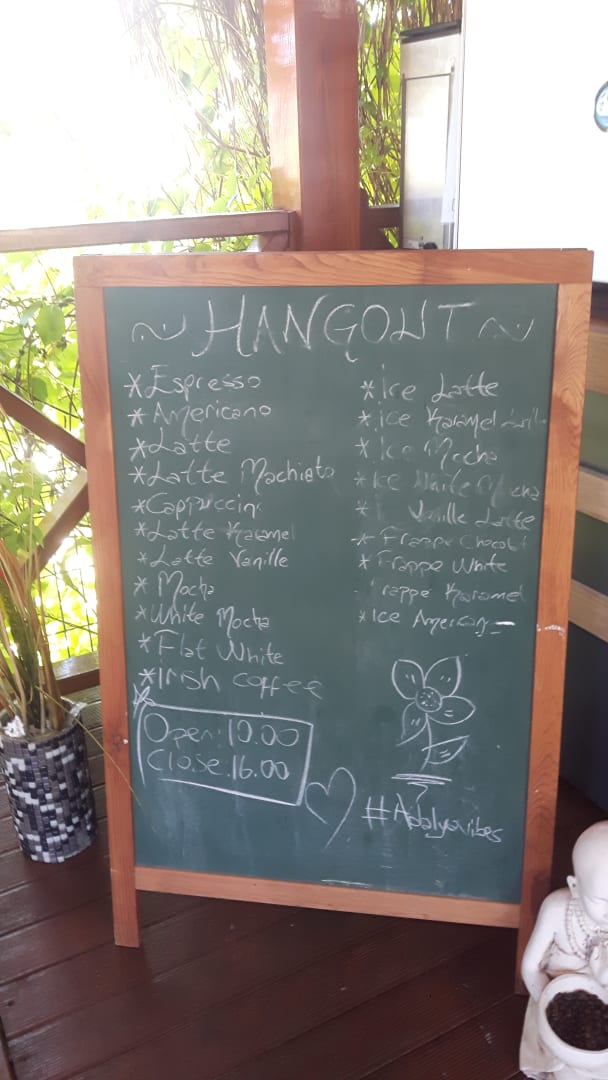 ~ HANGOUT ~
*Espresso
*Americano
*Latte
*Latte Machiato
*Cappuccin
*Latte Karamel
*Latte Vanille
*Mocha
*White Mocha
*Flat White
*Irish coffee
*Ice Latte
*ice Karamel
*Ice Mocha
*Ice White Mocha
Vanille Latte
*Frappe Chocolat
*Frappe White
rappe Karamel
*Ice American
Open: 10.00
Close: 16.00